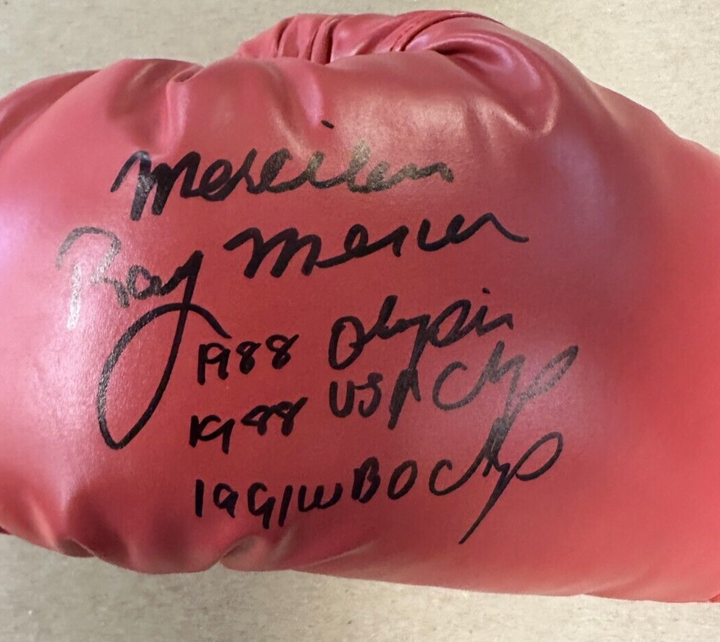 Merciless
Ray Mercer
1988 Olympic
1988 USA Chp
1991 WBO Chp